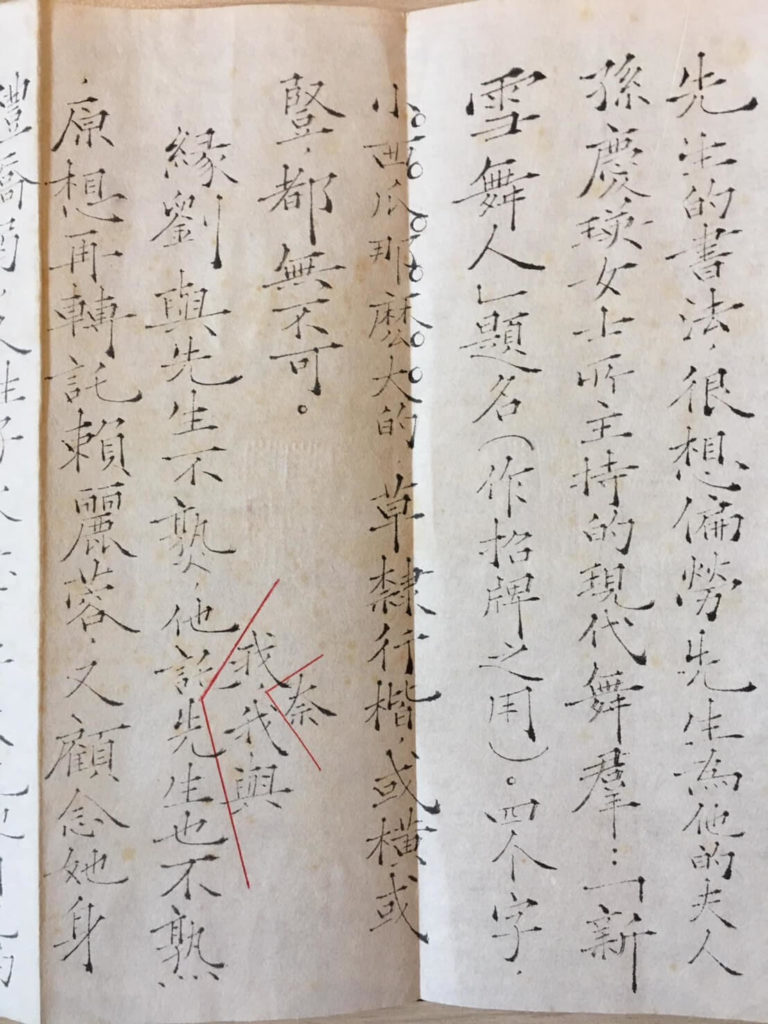 先生的書法，很想偏勞先生為他的夫人
孫慶瑛女士所主持的現代舞羣：「新
雪舞人」題名（作招牌之用）。四个字，
小西瓜那麽大的，草隸行楷，或橫或
豎，都無不可。
奈
我，我與
緣劉與先生不熟，他託先生也不熟
，原想再轉託賴麗蓉，又顧念她身